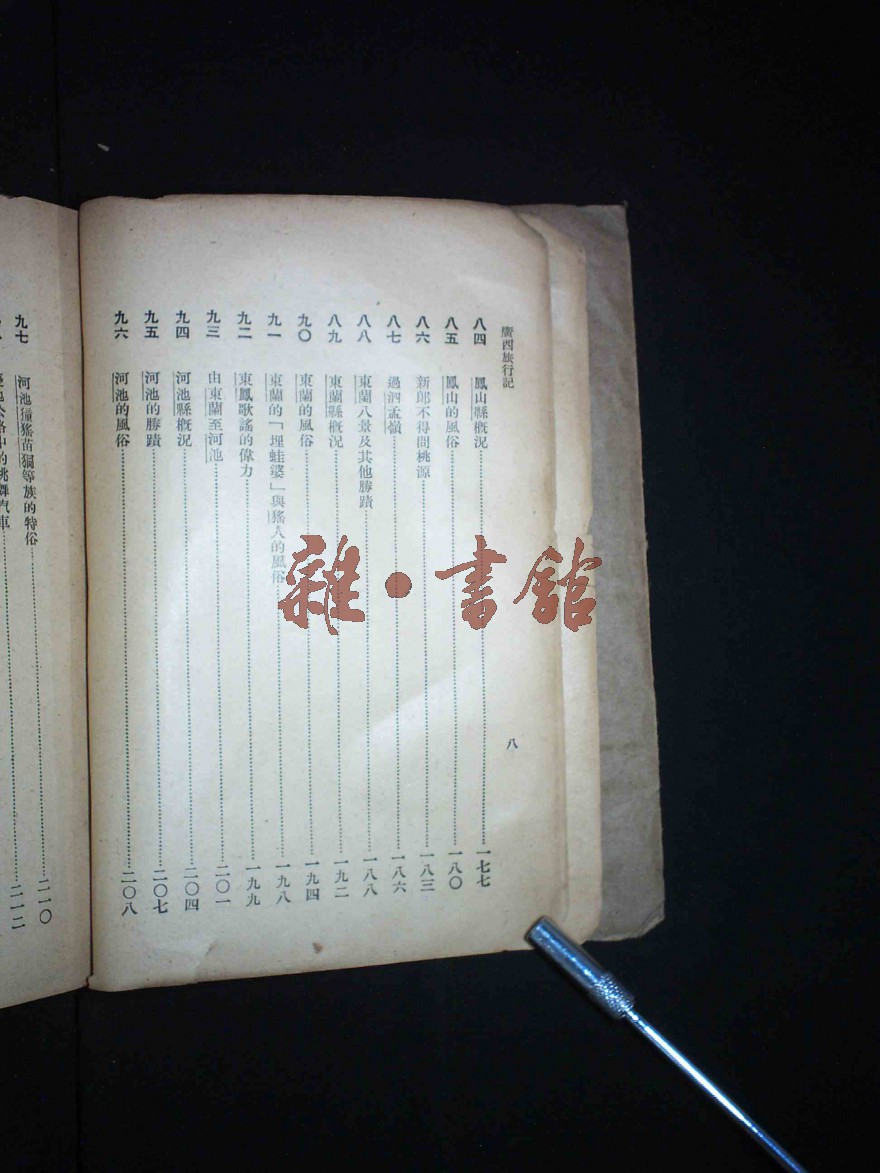 廣西旅行記
八
八四 鳳山縣概況 一七七
八五 鳳山的風俗 一八〇
八六 新郎不得問桃源 一八三
八七 過泗孟嶺 一八六
八八 東蘭八景及其他勝蹟 一八八
八九 東蘭縣概況 一九二
九〇 東蘭的風俗 一九四
九一 東蘭的「埋蛙婆」與猺人的風俗 一九八
九二 東鳳歌謠的偉力 一九九
九三 由東蘭至河池 二〇一
九四 河池縣概況 二〇四
九五 河池的勝蹟 二〇七
九六 河池的風俗 二〇八
九七 河池獞猺苗獨等族的特俗 二一〇
公路中的跳舞汽車 二一二
雜·書館